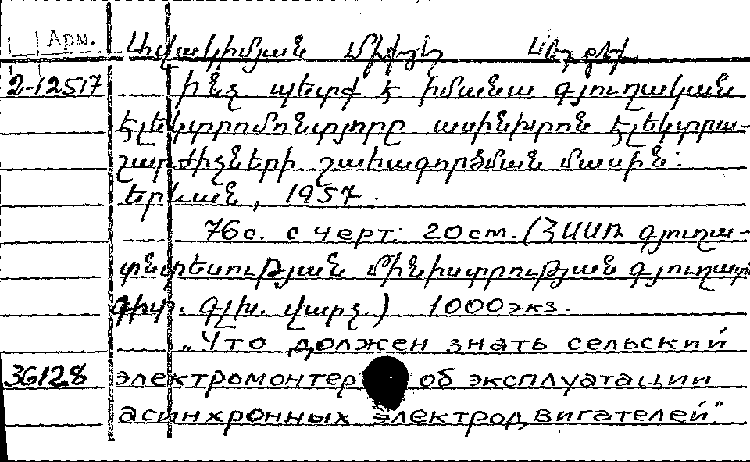 Арм. Ավակիմյան Միխչ
2-12517 Ինչ պետք է իմանա գյուղական
էլեկտրոմոնտյորը ասինխրոն էլեկտրա-
շարժիչների շահագործման մասին:
Երևան, 1957.
76с. с черт. 20см. (ՀՍՍՌ գյուղա-
տնտեսության մինիստրության գյուղատ
գիտ. գլխ. վարչ.) 1000экз.
„Что должен знать сельский
36128 электромонтер об эксплуатации
асинхронных электродвигателей."